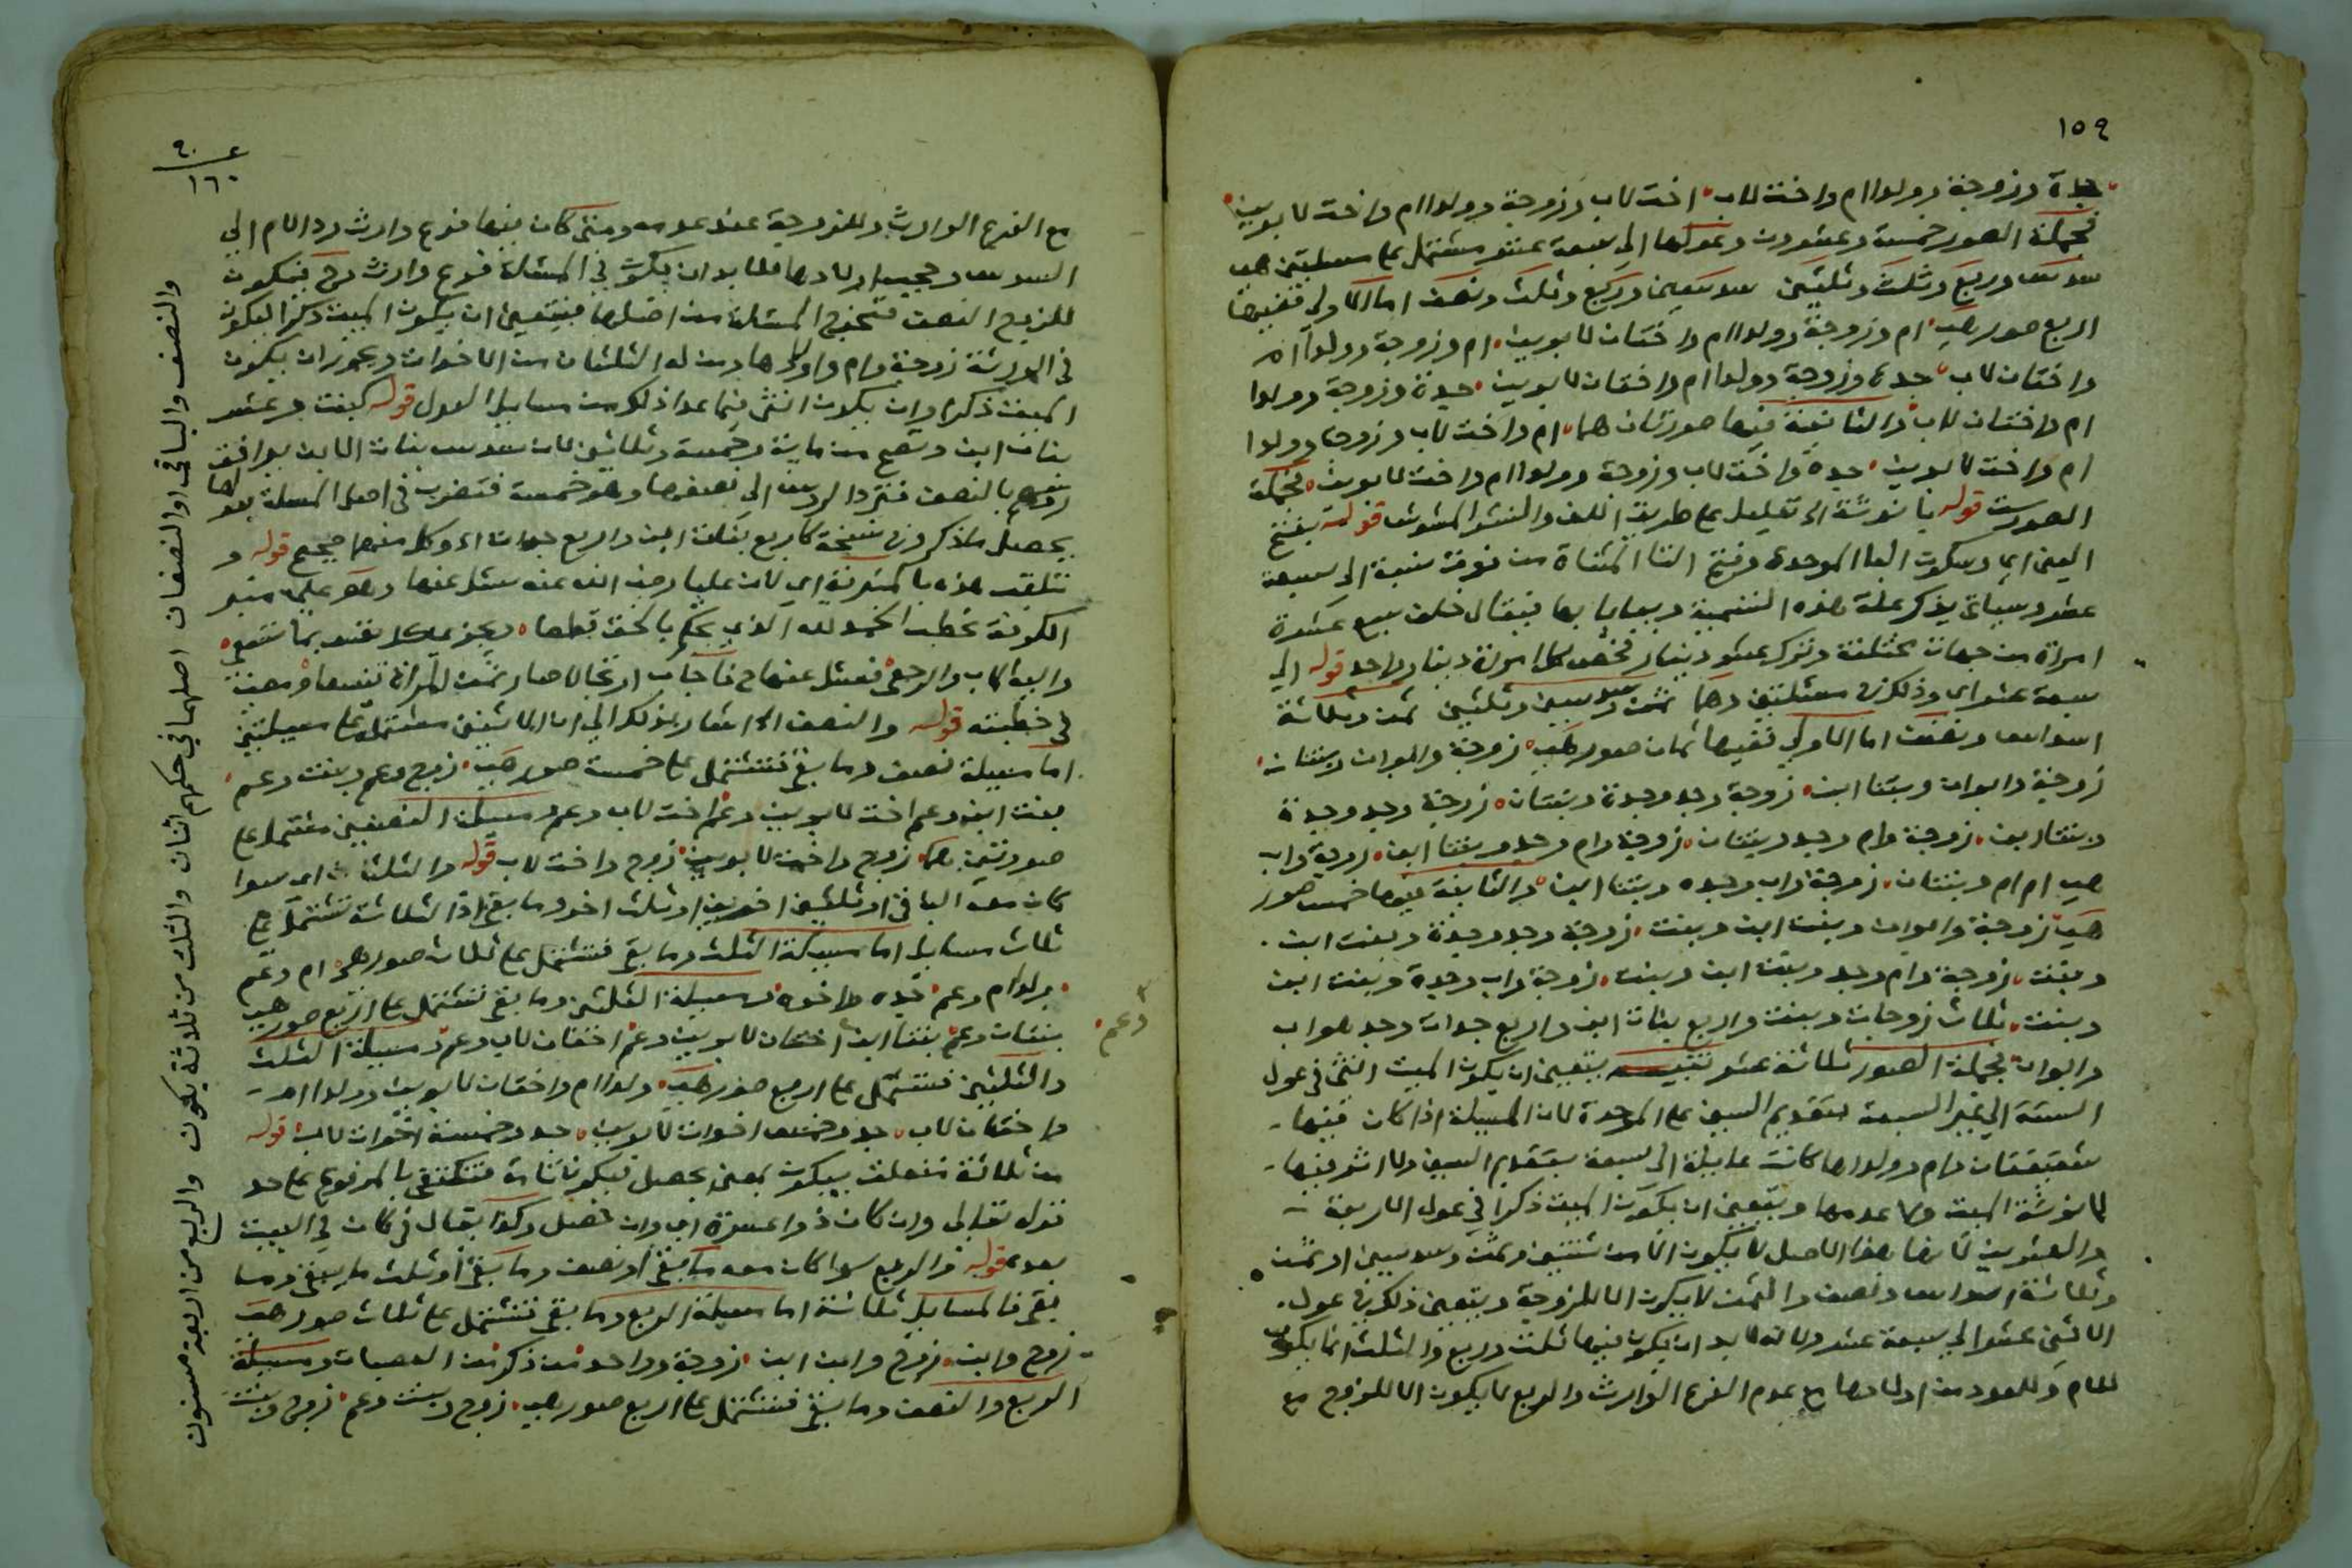 ١٥٩
جدة وزوجة وولدا ام واخت لاب اخت لاب وزوجة وولدا ام واخت لابوين
فجملة الصور خمسة وعشرون وعولها الى سبعة عشر مشتمل على مسئلتين هي
سدس وربع وثلث وثلثين سدسين وربع وثلث ونصف اما الاولى ففيها
اربع صور هي ام وزوجة وولدا ام واختان لابوين ام وزوجة وولدا ام
واختان لاب جدة وزوجة وولدا ام واختان لابوين جدة وزوجة وولدا
ام واختان لاب والثانية فيها صورتان هما ام واخت لاب وزوجة وولدا
ام واخت لابوين جدة واخت لاب وزوجة وولدا ام واخت لابوين فجملة
الصور ست قوله تعليل على طريق اللف والنشر المشوش قوله بفتح
العين اي وسكون الباء الموحدة وفتح التا المثناة من فوق نسبة الى سبعة
عشر وسياتي يذكر علة هذه التسمية ويعايا بها فيقال خلف سبع عشرة
امراة من جهات مختلفة وترك عشر دينار فخص كل امراة دينار واحد قوله الى
سبعة عشر اي وذلك في مسئلتين وهما ثمن وسدسين وثلثين ثمن وثلاثة
اسداس ونصف اما الاولى ففيها ثمان صور هي زوجة وابوان وبنتان
زوجة وابوان وبنتا ابن زوجة وجد وجدة وبنتان زوجة وجد وجدة
وبنتا ابن زوجة وام وجد وبنتان زوجة وام وجد وبنتا ابن زوجة واب
هي ام ام وبنتان زوجة واب وجده وبنتا ابن والثانية فيها خمس صور
هي زوجة وابوان وبنت ابن وبنت زوجة وجد وجدة وبنت ابن
وبنت زوجة وام وجد وبنت ابن وبنت زوجة واب وجدة وبنت ابن
وبنت ثلاث زوجات وبنت واربع بنات ابن واربع جدات وجد هو اب
وابوان فجملة الصور ثلاثة عشر يتعين ان يكون الميت انثى في عول
الستة الى غير السبعة بتقديم السين على الموحدة لان المسيلة اذا كان فيها
شقيقتان وام وولداها كانت عايلة الى سبعة بتقديم السين ولا اثر فيها
لانوثة الميت ولا عدمها ويتعين ان يكون الميت ذكرا في عول الاربعة
والعشرين لان هذا الاصل لا يكون الا من ثلثين وثمن وسدسين او ثمن
وثلاثة اسداس ونصف والثمن لا يكون الا للزوجة ويتعين ذلك في عول
الاثني عشر الى سبعة عشر ولانه لا بد ان يكون فيها ثلث وربع والثلث انما يكون
للام وللعدد من اولادها مع عدم الفرع الوارث والربع لا يكون الا للزوج مع
٩٠
١٦٠
مع الفرع الوارث وللزوجة عند عدمه ومتى كان فيها فرع وارث رد الام الى
السدس وحجب اولادها فلا بد ان يكون في المسئلة فرع وارث وح فيكون
للزوج النصف فتخرج المسئلة من اصلها فيتعين ان يكون الميت ذكرا ليكون
في الورثة زوجة وام واولادها ومن له الثلثان من الاخوات ويجوز ان يكون
الميت ذكرا وان يكون انثى فيما عدا ذلك من مسايل العول قوله كبنت وعشر
بنات ابن وتصح من ماية وخمسة وثلاثين لان سدس بنات الابن يوافق
بالنصف فترد الروس الى نصفها وهو خمسة فتضرب في اصل المسئلة بعولها
يحصل ما ذكر وفي نسخة كاربع بنات ابن واربع جدات اه وكل منهما صحيح قوله و
تلقب هذه بالمنبرية اي لان عليا رضي الله عنه سئل عنها وهو على منبر
الكوفة يخطب الحمد لله الذي يحكم بالحق قطعا ويجزي كل نفس بما تسعى
واليه الماب والرجعى فسئل عنها ح فاجاب ارتجالا صار ثمن المراة تسعا ومضى
في خطبته قوله والنصف اه اشار بذلك الى ان الاثنين مشتملة على مسيلتين
اما مسيلة نصف وما بقي فتشتمل على خمس صور هي زوج وعم وبنت وعم
بنت ابن وعم اخت لابوين وعم اخت لاب وعم ومسيلة النصفين مشتمل على
صورتين هما زوج واخت لابوين زوج واخت لاب قوله والثلث اي سوا
كان معه الباقي او ثلثين اخوين او ثلث اخر وما بقي اذ الثلاثة تشتمل على
ثلاث مسايل اما مسيلة الثلث وما بقي فتشتمل على ثلاث صور هي ام وعم
ولدا ام وعم جده واخوه ومسيلة الثلثين وما بقي تشتمل على اربع صور هي
بنتان وعم بنتا ابن اختان لابوين وعم اختان لاب وعم ومسيلة الثلث
وعم
والثلثين فتشتمل على اربع صور هي ولدا ام واختان لابوين وولدا ام
واختان لاب جد وخمس اخوات لابوين جد وخمسة اخوات لاب قوله
من ثلاثة متعلق بيكون بمعنى يحصل فيكون تامة فتكتفي بالمرفوع على حد
قوله تعالى وان كان ذو عسرة اي وان حصل وكذا يقال في كان في البيت
بعد قوله والربع سوا كان معه ما بقي او نصف وما بقي او ثلث ما بقي وما
بقي فالمسايل ثلاثة اما مسيلة الربع وما بقي فتشتمل على ثلاث صور هي
زوج وابن زوج وابن ابن زوجة وواحد من ذكر من العصبات ومسيلة
الربع والنصف وما بقي فتشتمل على اربع صور هي زوج وبنت وعم زوج وبنت
والنصف والباقي او النصفان اصلهما في حكمهم اثنان والثلث من ثلاثة يكون والربع من اربعة مسنون